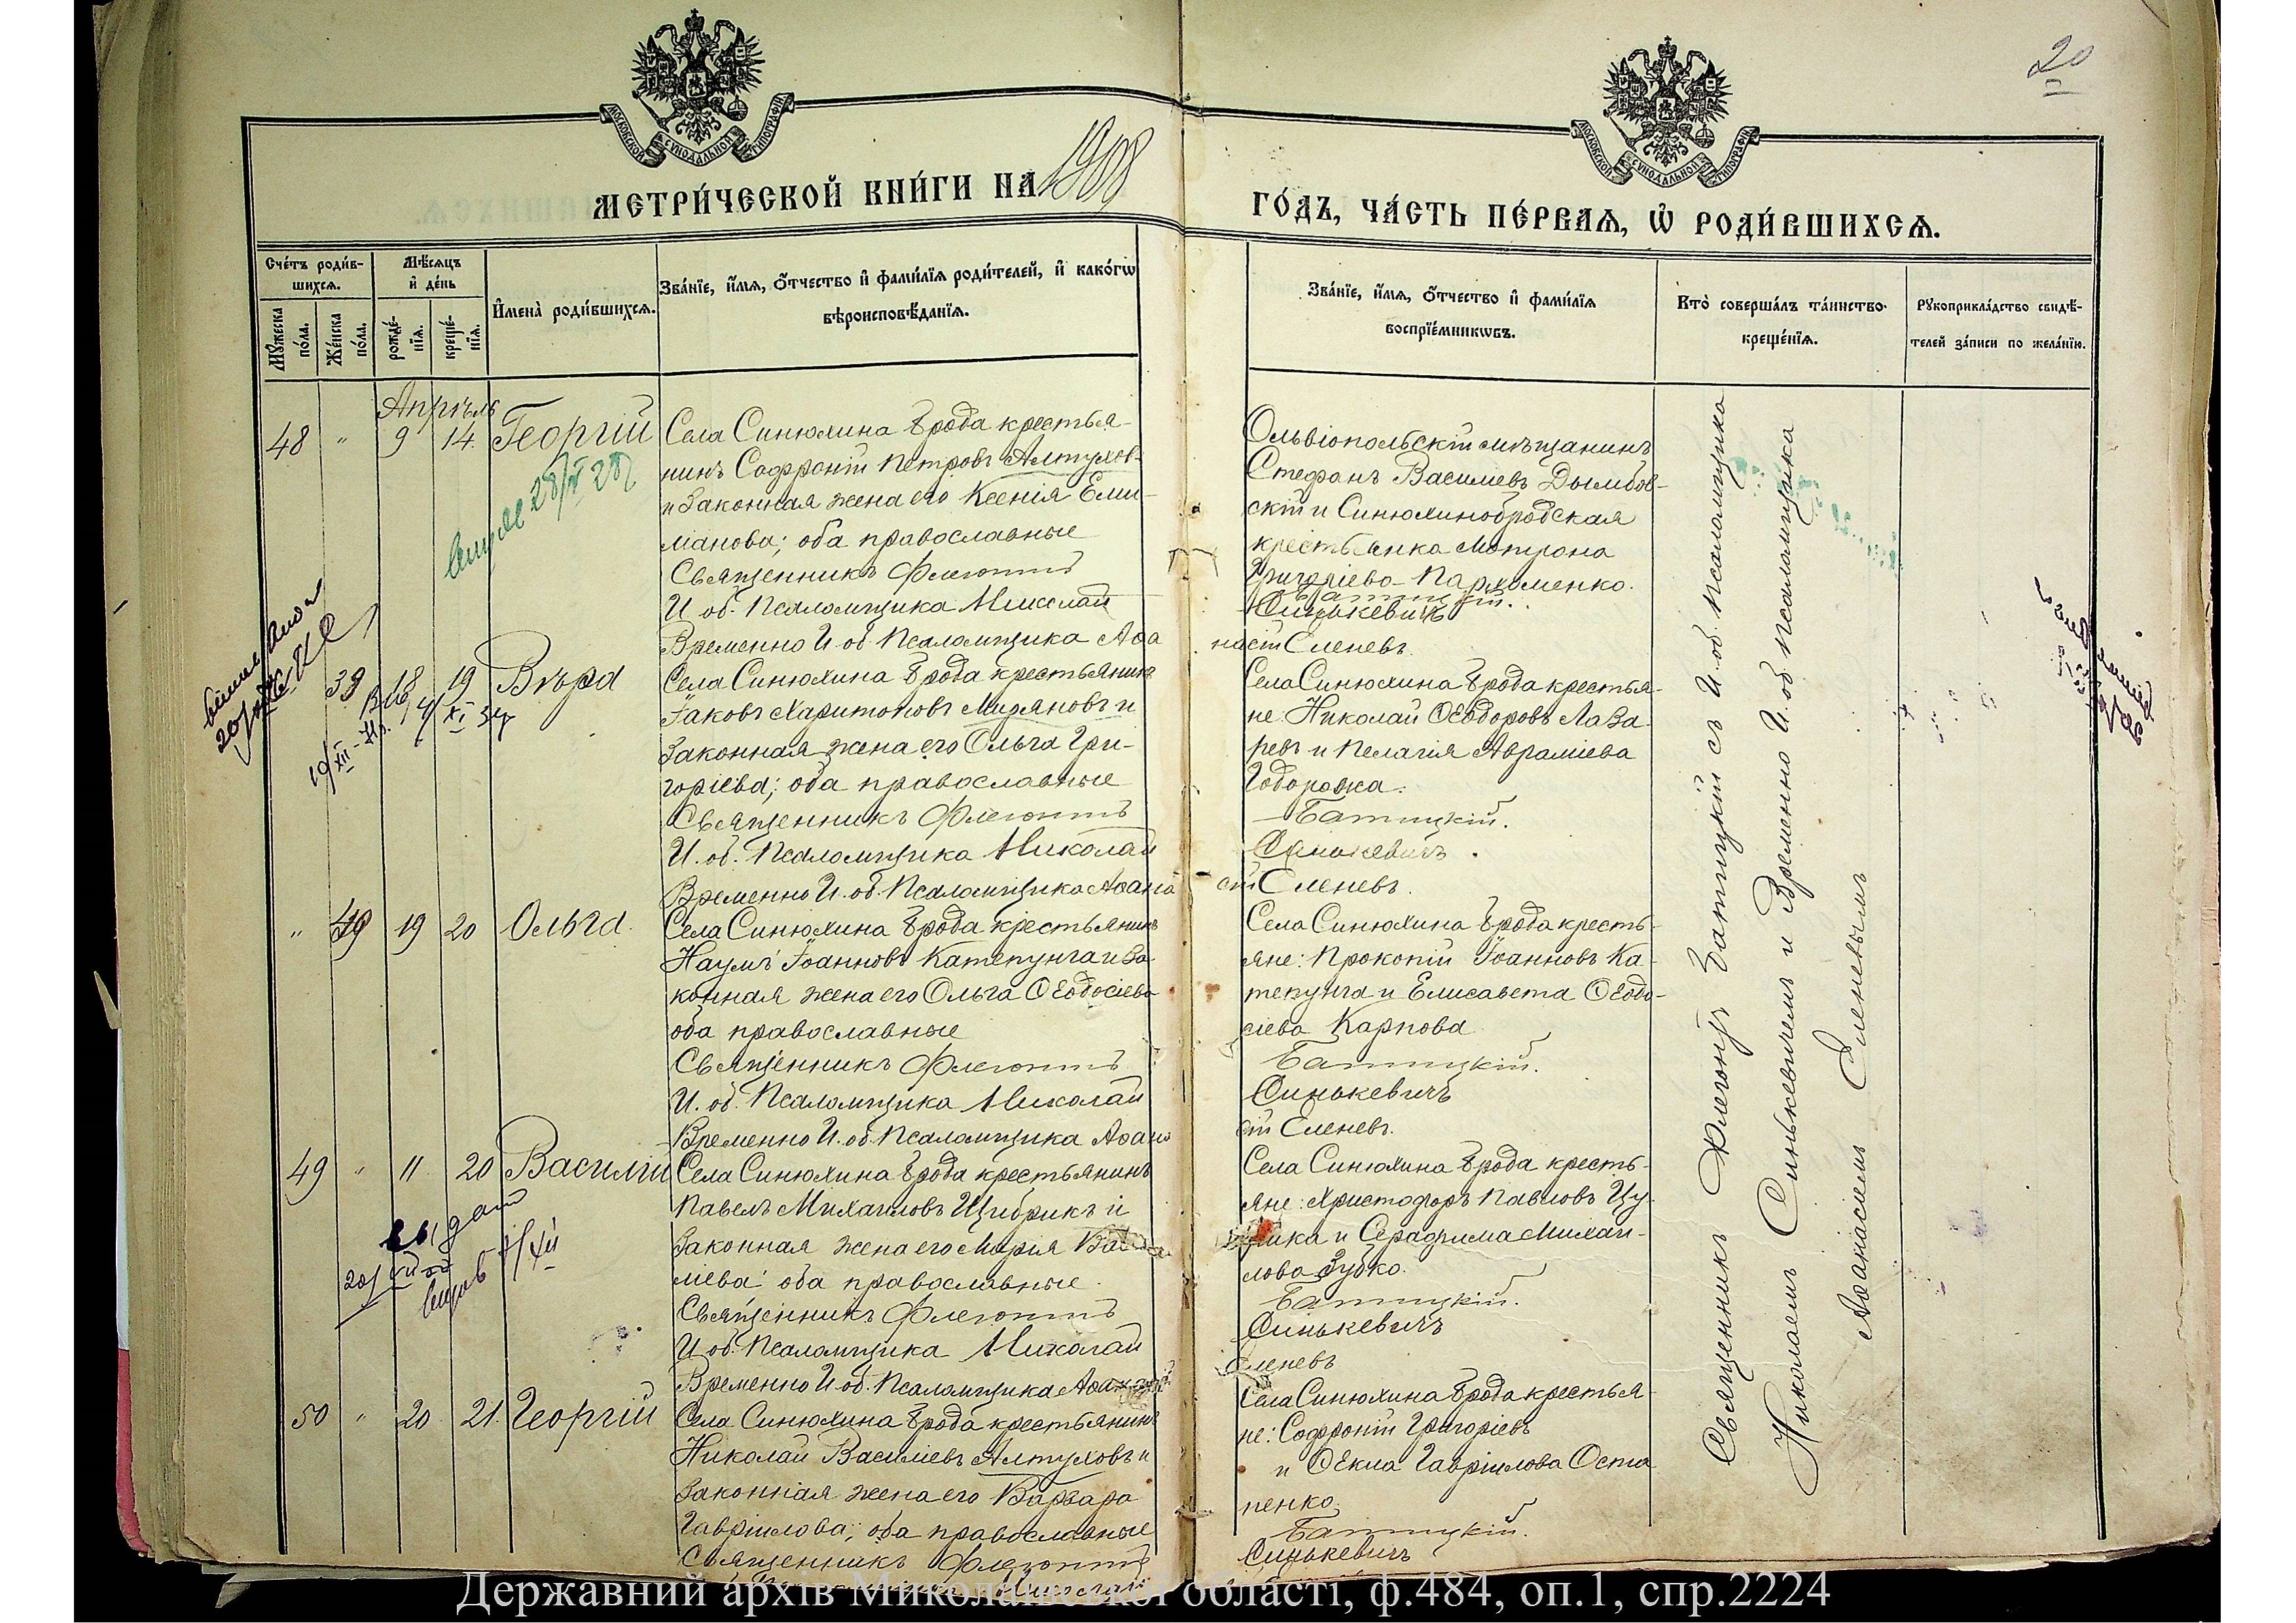 20
МОСКОВСКОЙ СѴНОДАЛЬНОЙ ТИПОГРАФІИ
МОСКОВСКОЙ СѴНОДАЛЬНОЙ ТИПОГРАФІИ
МЕТРИ́ЧЕСКОЙ КНИ́ГИ НА 1908
ГО́ДЪ, ЧА́СТЬ ПЕ́РВАѦ, Ѡ҆ РОДИ́ВШИХСѦ.
Сче́тъ роди́в-
шихсѧ.
Мꙋ́жеска по́ла.
Же́нска по́ла.
Мѣ́сѧцъ
и҆ де́нь
рожде́-
нїѧ.
креще́-
нїѧ.
И҆мена̀ роди́вшихсѧ.
Зва́нїе, и҆́мѧ, ѻ҆́тчество и҆ фами́лїѧ роди́телей, и҆ како́гѡ
вѣроисповѣ́данїѧ.
Зва́нїе, и҆́мѧ, ѻ҆́тчество и҆ фами́лїѧ
воспрїе́мникѡвъ.
Кто̀ соверша́лъ та́инство
креще́нїѧ.
Рꙋкоприкла́дство свидѣ́-
телей за́писи по жела́нїю.
Апрѣль
48 " 9 14 Георгій
Села Синюхина Брода крестья-
нинъ Софроній Петровъ Алтухов-
и законная жена его Ксенія Ели-
манова; оба православные
Священникъ Флегонтъ
И об. Псаломщика Николай
Временно И об. Псаломщика Афа
Ольвіопольскій мѣщанинъ
Стефанъ Василіевъ Дымбов-
скій и Синюхинобродская
крестьянка Мотрона
Григоріева Пархоменко.
Батицкій.
Синькевичъ
насій Еленевъ.
39 18 19 Вѣра
Села Синюхина Брода крестьянинъ
Іаковъ Харитоновъ Мирановъ и
законная жена его Ольга Гри-
горіева; оба православные
Священникъ Флегонтъ
И. об. Псаломщика Николай
Временно И. об. Псаломщика Афана
Села Синюхина Брода крестья-
не: Николай Ѳеодоровъ Лаза-
ревъ и Пелагія Авраміева
Батицкій.
Синькевичъ.
сій Еленевъ.
" 40 19 20 Ольга.
Села Синюхина Брода крестьянинъ
Наумъ Іоанновъ Катепунга и за-
конная жена его Ольга Ѳеодосіева
оба православные
Священникъ Флегонтъ
И. об. Псаломщика Николай
Временно И. об. Псаломщика Афана
Села Синюхина Брода кресть-
яне: Прокопій Іоанновъ Ка-
тепунга и Елисавета Ѳеодо-
сіева Карпова
Батицкій.
Синькевичъ
сій Еленевъ.
49 " 11 20 Василій
Села Синюхина Брода крестьянинъ
Павелъ Михаиловъ Щибрикъ и
законная жена его Марія
оба православные.
Священникъ Флегонтъ
И об. Псаломщика Николай
Временно И об. Псаломщика
Села Синюхина Брода кресть-
яне: Христофоръ Павловъ
и Серафима Михаи-
лова Зубко.
Батицкій.
Синькевичъ
Еленевъ
50 " 20 21. Георгій
Села Синюхина Брода крестьянинъ
Николай Василіевъ Алтуховъ и
законная жена его Варвара
Гавріилова; оба православные
Священникъ Флегонтъ
Николай
Села Синюхина Брода крестья-
не: Софроній Григоріевъ
и Ѳекла Гавріилова Оста
пенко
Батицкій.
Синькевичъ
Священникъ Флегонтъ Батицкій съ И. об. Псаломщика
Николаемъ Синькевичемъ и Временно И. об Псаломщика
Афанасіемъ Еленевымъ
Державний архів Миколаївської області, ф.484, оп.1, спр.2224